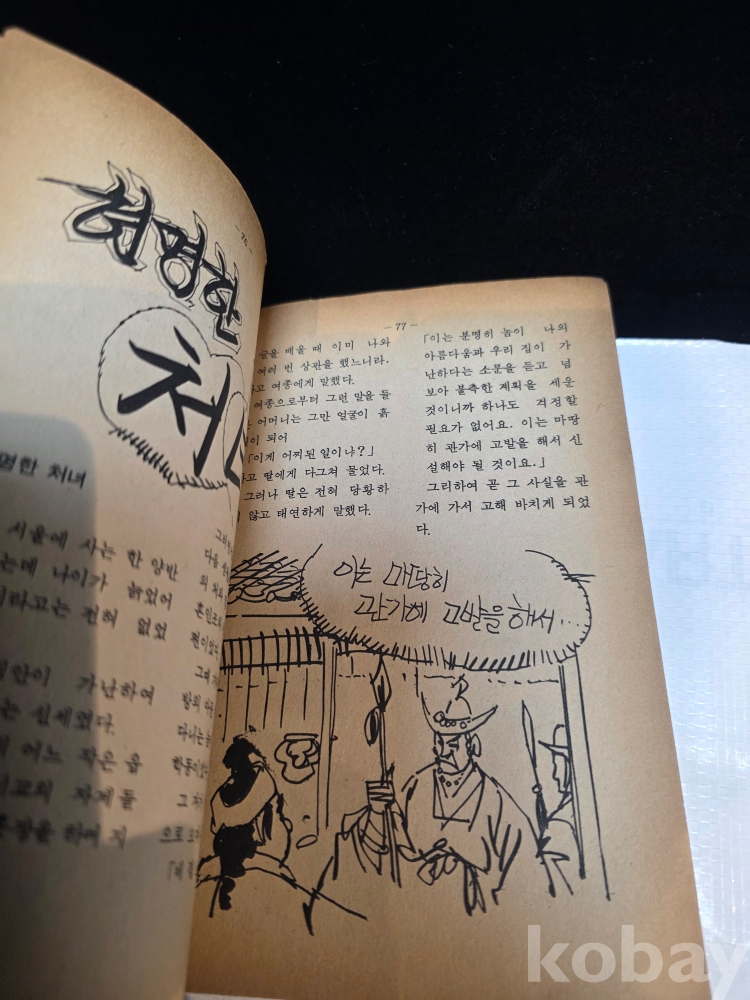 현명한
처녀
- 76 -
명한 처녀
서울에 사는 한 양반
는데 나이가 늙었어
이라고는 전혀 없었
집안이 가난하여
는 신세였다.
어느 작은 읍
자제들
다음
그때
다니는
- 77 -
글을 배울 때 이미 나와
여러 번 상관을 했느니라.
라고 여종에게 말했다.
여종으로부터 그런 말을 들
은 어머니는 그만 얼굴이 흙
빛이 되어
「이게 어찌된 일이냐?」
라고 딸에게 다그쳐 물었다.
그러나 딸은 전혀 당황하
지 않고 태연하게 말했다.
「이는 분명히 놈이 나의
아름다움과 우리 집이 가
난하다는 소문을 듣고 넘
보아 불측한 계획을 세운
것이니까 하나도 걱정할
필요가 없어요. 이는 마땅
히 관가에 고발을 해서 신
설해야 될 것이요.」
그리하여 곧 그 사실을 관
가에 가서 고해 바치게 되었
다.
이는 마땅히
관가에 고발을 해서...
kobay